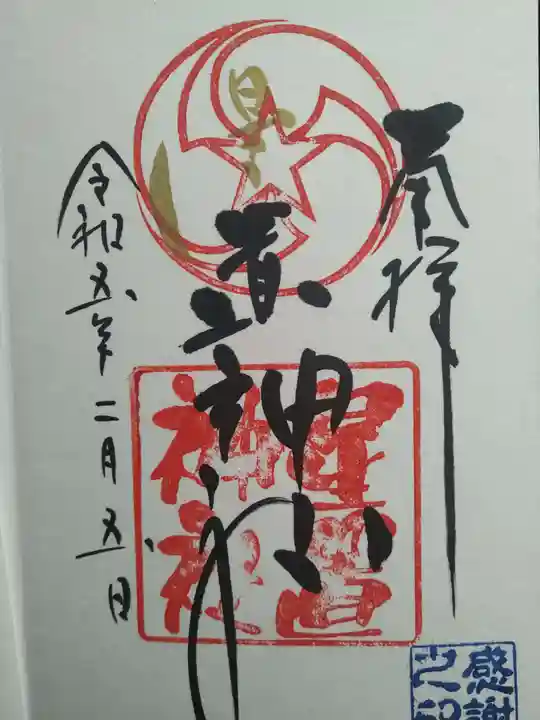 奉拝
星置神社
星置
神社
令和五年二月五日
感謝
之印